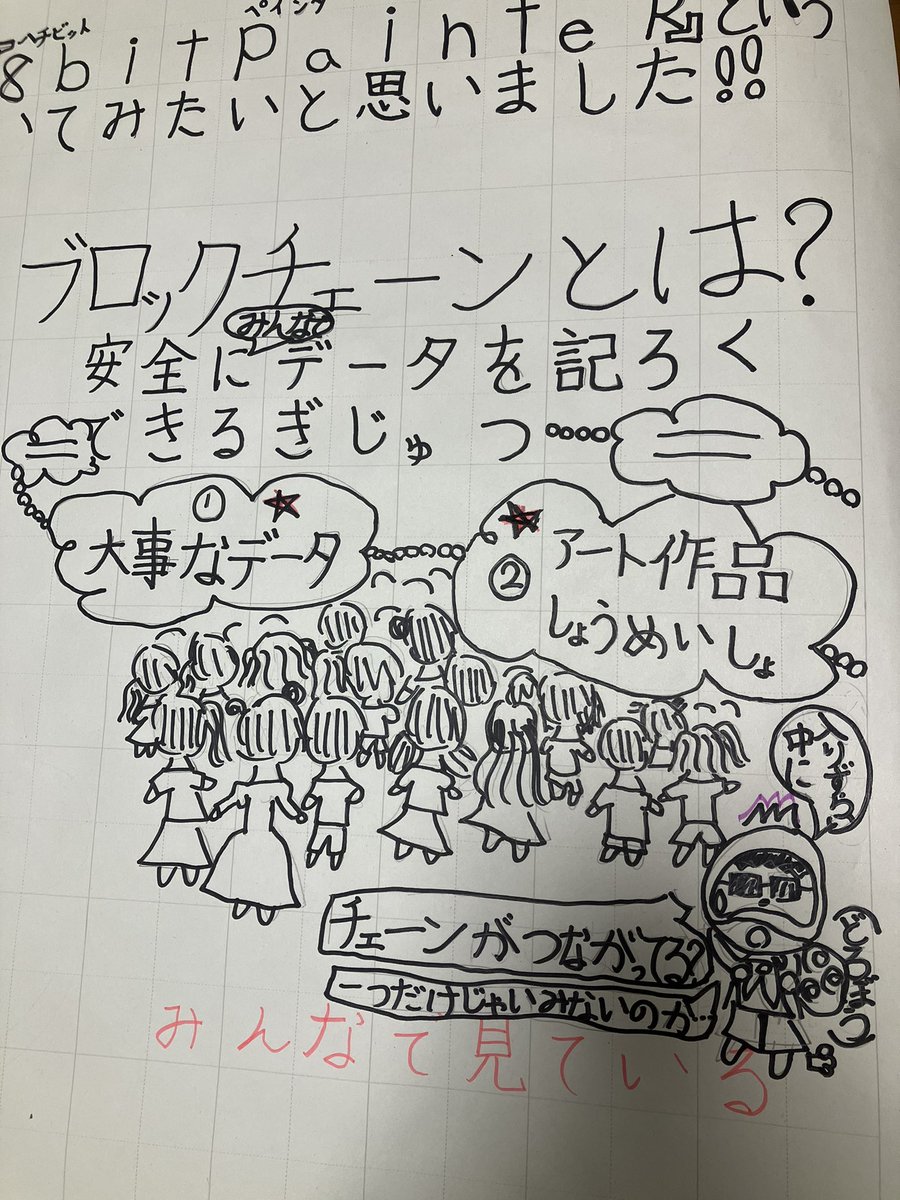 ペインタ
8bitPainteRという
いてみたいと思いました!!
ブロックチェーンとは?
みんなで
安全にデータを記ろく
できるぎじゅつ
① 大事なデータ
② アート作品
しょうめいしょ
中に
入りずらう
どろぼう
チェーンがつながってる?
一つだけじゃいみないのか…
みんなで見ている